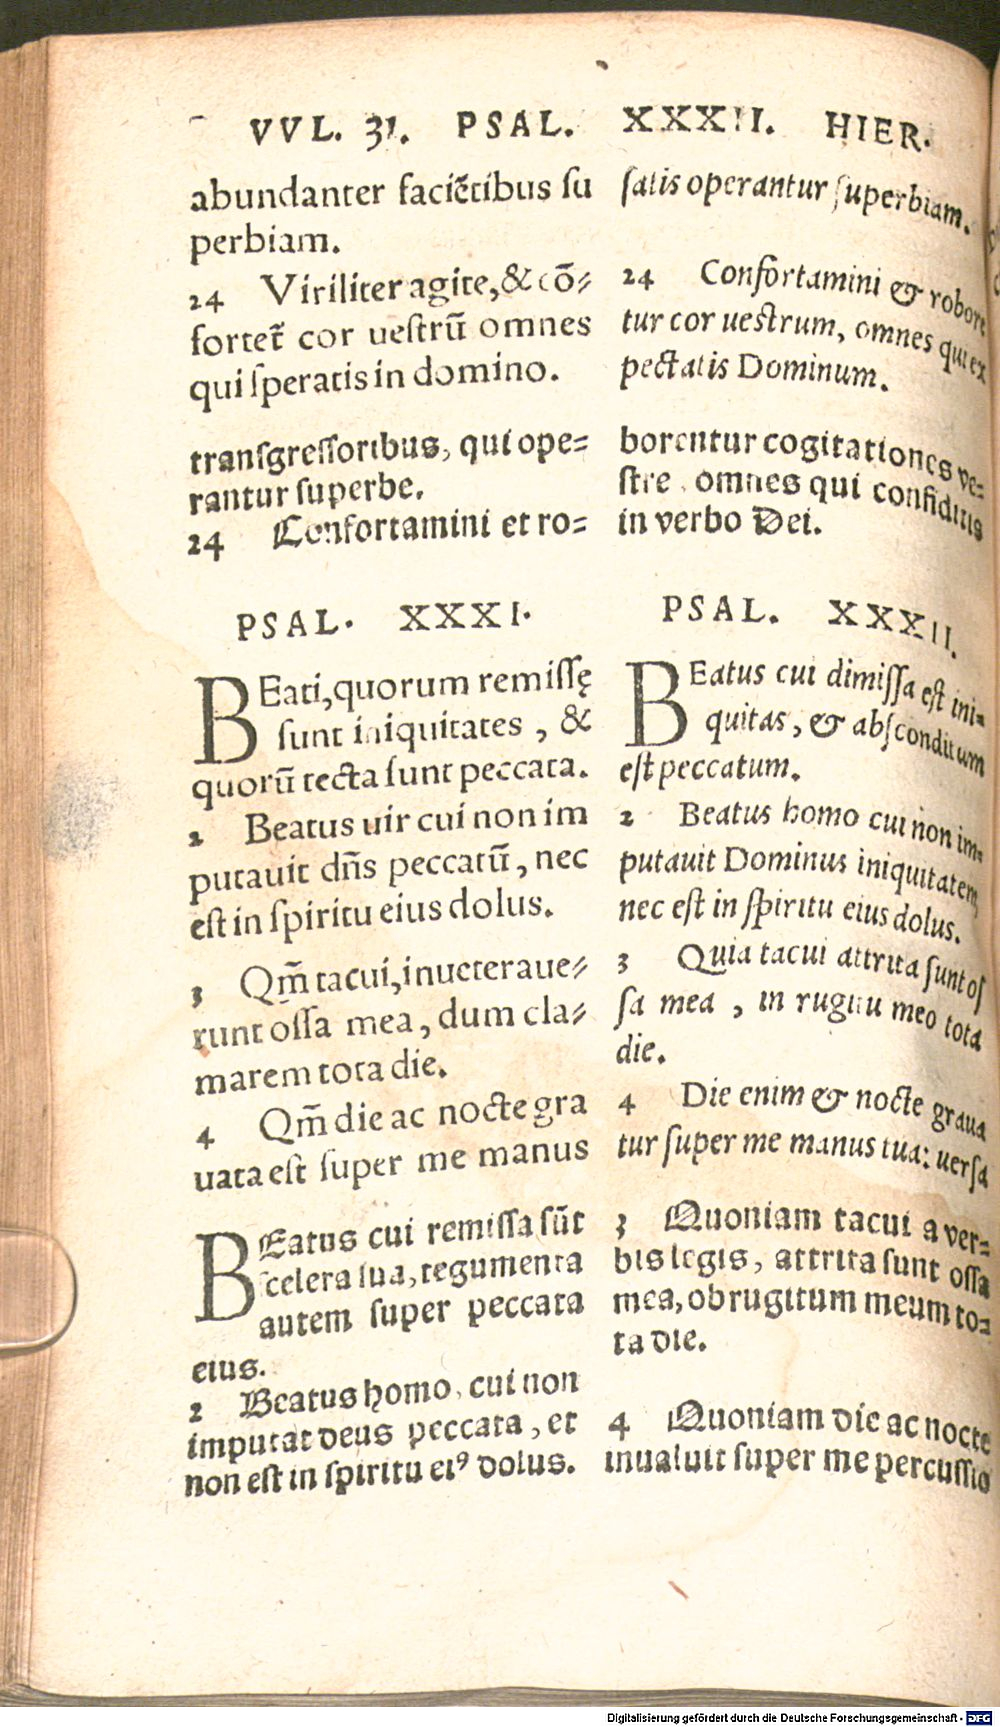 VVL. 31. PSAL. XXXII. HIER.
abundanter faciẽtibus su
perbiam.
24 Viriliter agite, & cõ-
fortet᷑ cor uestrũ omnes
qui speratis in domino.
satis operantur superbiam.
24 Confortamini & robore
tur cor uestrum, omnes qui ex
pectatis Dominum.
transgressoribus, qui ope=
rantur superbe.
24 Confortamini et ro=
borentur cogitationes ve=
stre omnes qui confiditis
in verbo Dei.
PSAL. XXXI.
BEati, quorum remissę
sunt iniquitates, &
quorũ tecta sunt peccata.
2 Beatus uir cui non im
putauit dñs peccatũ, nec
est in spiritu eius dolus.
3 Qm̃ tacui, inueteraue-
runt ossa mea, dum cla-
marem tota die.
4 Qm̃ die ac nocte gra
uata est super me manus
PSAL. XXXII.
BEatus cui dimissa est ini-
quitas, & absconditum
est peccatum.
2 Beatus homo cui non im-
putauit Dominus iniquitatem,
nec est in spiritu eius dolus.
3 Quia tacui attrita sunt os
sa mea, in rugitu meo tota
die.
4 Die enim & nocte graua
tur super me manus tua: uersa
BEatus cui remissa sũt
scelera sua, tegumenta
autem super peccata
eius.
2 Beatus homo, cui non
imputat deus peccata, et
non est in spiritu eiꝰ dolus.
3 Quoniam tacui a ver=
bis legis, attrita sunt ossa
mea, ob rugitum meum to=
ta die.
4 Quoniam die ac nocte
inualuit super me percussio
Digitalisierung gefördert durch die Deutsche Forschungsgemeinschaft - DFG